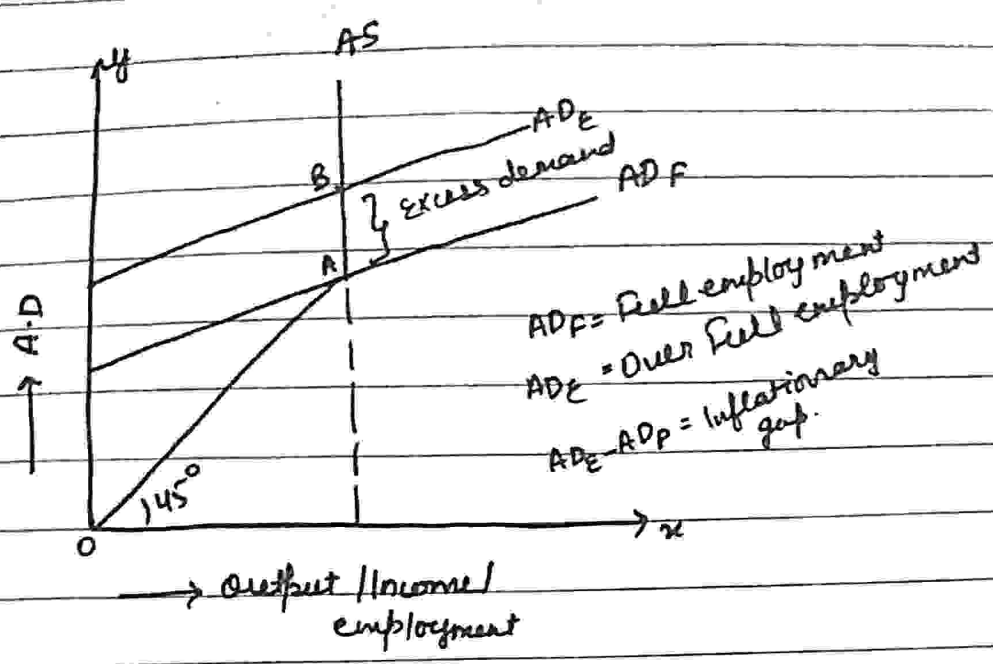 AS
y
ADE
B
Excess demand
AD F
A
A.D
ADF = Full employment
ADE = Over Full employment
ADE - ADP = Inflationary
gap.
45°
O
x
Output / Income /
employment